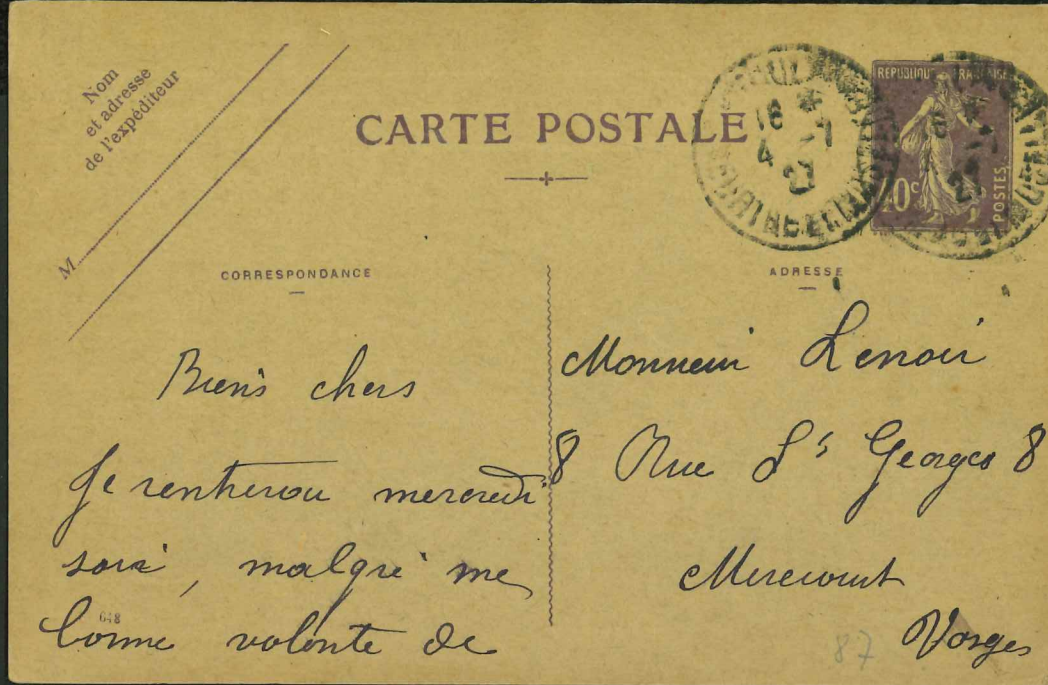 Nom
et adresse
de l'expéditeur
M
CARTE POSTALE
REPUBLIQUE FRANCAISE
40c
POSTES
16 *
4 -7
27
CORRESPONDANCE
ADRESSE
Biens chers
Je rentrerai mercredi
soir, malgré me
bonne volonte de
648
Monsieur Lenoir
8 Rue St Georges 8
Mirecourt
Vosges
87